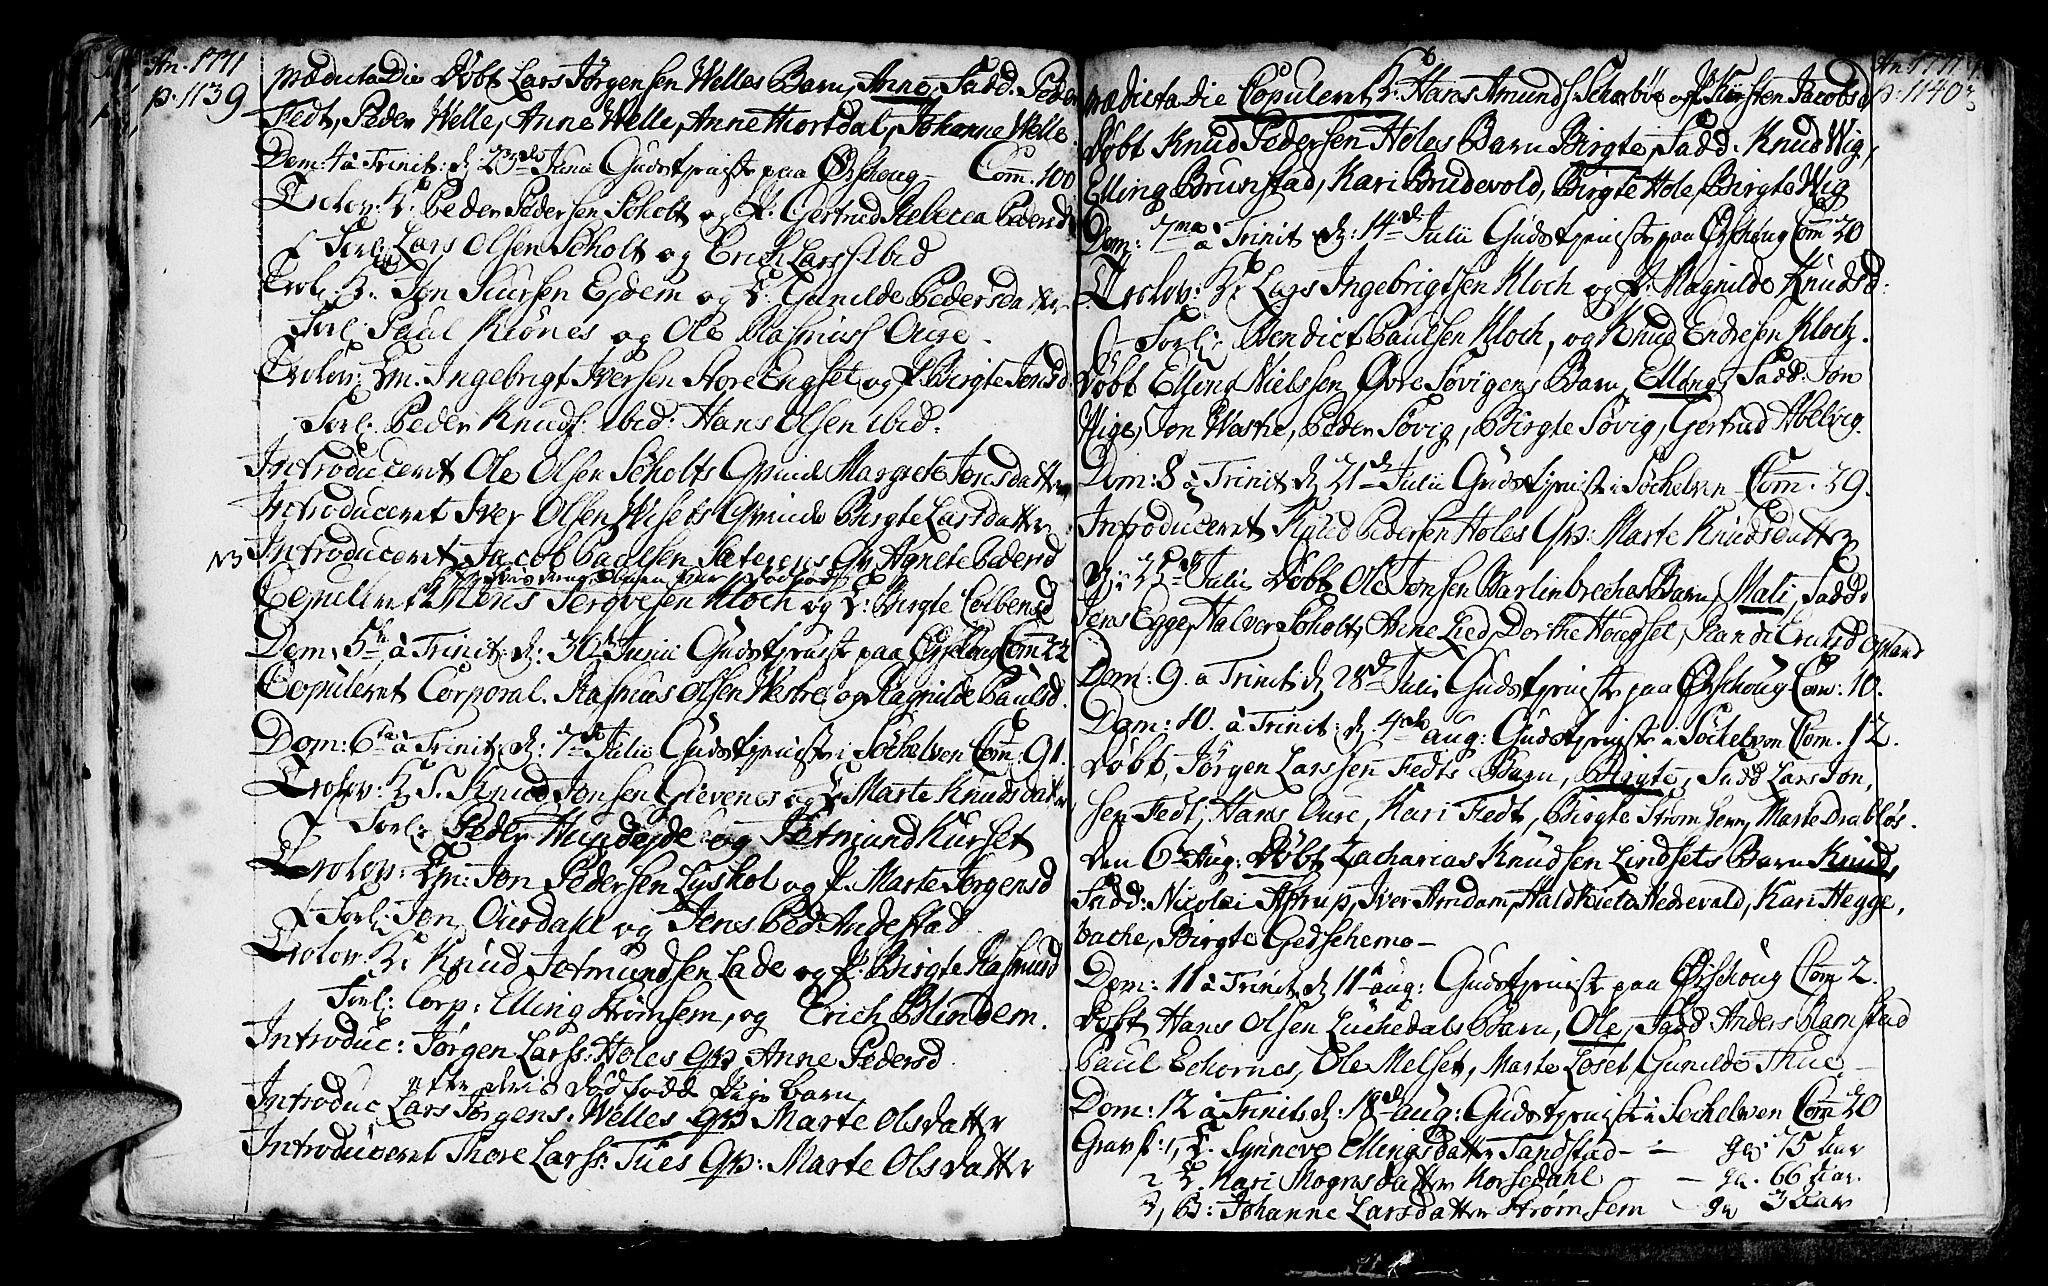 An. 1771
p. 1139
prædicta Die Døbt Lars Jørgensen Welles Barn, Anne, Fadd. Peder
Fedt, Peder Welle, Anne Welle, Anne Thortdal, Johanne Welle
Dom: 4 à Trinit: d. 23de Junii Gudstjeniste paa Ørschoug – Com. 100
Trolov: K. Peder Pedersen Soholt og P. Gertrud Rebecca Pedersd
Forl: Lars Olsen Soholt og Erich Larss ibid
Trol. K. Jon Siursen Eidem og P. Gunilde Pedersdatter
Forl: Paul Kiønes og Ole Rasmuss Oure.
Trolov: Em. Ingebrigt Iversen Store Engset og P. Birgte Jonsd
Forl: Peder Knuds: ibid: Hans Olsen ibid.
Introduceret Ole Olsen Soholts Qvinde Margrete Jonsdatter
Introduceret Iver Olsen Wisets Qvinde Birgte Larsdatter
NB Introduceret Jacob Paulsen Sæterens Qv. Agnete Pedersd
Copuleret K. Mons Torgvesen Kloch og P: Birgte Colbensd
Dom: 5te à Trinit: d: 30te Junii Gudstjeniste paa Ørschoug Com 32
Copuleret Corporal. Rasmus Olsen Westre og Ragnilde Paulsd.
Dom: 6te à Trinit: d: 7de Julii Gudstjeniste i Søchelven Com: 91.
Trolov: K. S. Knud Jonsen Gievenes og P. Marte Knudsdatter
Forl: Peder Hundejde og Jetmund Kurset
Trolov: Em: Jon Pedersen Lyshol og P. Marte Jørgensd
Forl: Jon Ouerdahl og Jens Ped: Andestad
Trolov: K: Knud Jetmundsen Lade og P. Birgte Rasmusd
Forl: Corp: Elling Strømsem, og Erich Blindem.
Introduc: Jørgen Larss: Holes Qv: Anne Pedersd.
efter deris dødfødd Pige barn
Introduc Lars Jørgens: Welles Qv: Marte Olsdatter
Introduceret Thore Larss: Tues Qv: Marte Olsdatter
An. 1771
p. 1140
prædicta die Copuleret K: Hans Amunds Scharbøe og P. Kirsten Jacobsd
Døbt Knud Pedersen Holes Barn Birgte, Fadd. Knud Wig,
Elling Brunstad, Kari Brudevold, Birgte Hole, Birgte Wig
Dom: 7ma à Trinit d: 14de Julii Gudstjeniste paa Ørschoug Com 20
Trolov: K: Lars Ingebrigtsen Kloch og P. Magnilde Knudsd:
Forl: Bendict Paulsen Kloch, og Knud Endresen Kloch.
Døbt Elling Nielssen, Øvre Søvigens Barn, Elling, Fadd: Jon
Wige, Jon Wastre, Peder Søvig, Birgte Søvig, Gertrud Abelvig.
Dom: 8 à Trinit d. 21de Julii Gudstjeniste i Søchelven – Com. 29.
Introduceret Knud Pedersen Holes Qv: Marte Knudsdatter
D: 25de Julii Døbt Ole Jonsen Barlinbrechens Barn, Mali, Fadd:
Jens Egge, Halvor Soholt, Anne Lied, Dorthe Hougset, Randi Erichsd Opland
Dom: 9. à Trinit. d. 28de Julii Gudstjeniste paa Ørschoug Com: 10.
Dom: 10. à Trinit: d. 4de aug: Gudstjeniste i Søchelven Com. 12.
Døbt, Jørgen Larssen Fedts Barn, Birgte, Fadd Lars Jon,
sen Fedt, Hans Oure, Kari Fedt, Birgte Strømsem, Marte Drabløs.
Den 6te Aug: Døbt Zacharias Knudsen Lindsets Barn Knud,
Fadd: Nicolai Astrup, Iver Amdam, Haldkield Hedrevald, Kari Hegge,
bache, Birgte Gedschemo –
Dom: 11 à Trinit d. 11te aug: Gudstjeniste paa Ørschoug Com 2.
Døbt Hans Olsen Luchedals Barn, Ole, Fadd Anders Ramstad
Paul Echornes, Ole Melset, Marte Løset, Gunilde Thue –
Dom: 12 à Trinit. d: 18de aug: Gudstjeniste i Søchelven Com 20
Grav f: 1, P. Synnøve Ellingsdatter Sandstad – – gl: 75 Aar
2 P. Kari Mogensdatter Korsedahl – gl. 66 Aar.
3, B: Johanne Larsdatter Strømsem – gl 3 Aar